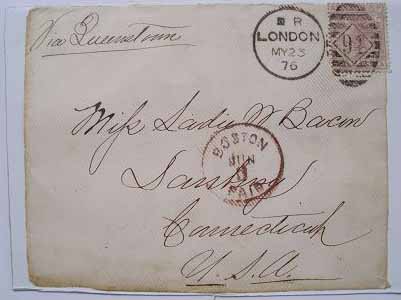 Via Queenstown
R
LONDON
MY 23
76
91
Miss Sadie W Bacon
BOSTON
JUN
PAID
Danbury
Connecticut
U.S.A.